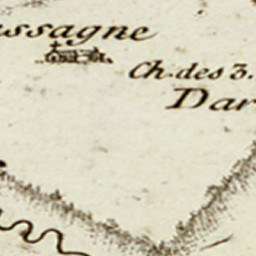 ssagne
Ch. des 3.
Dar